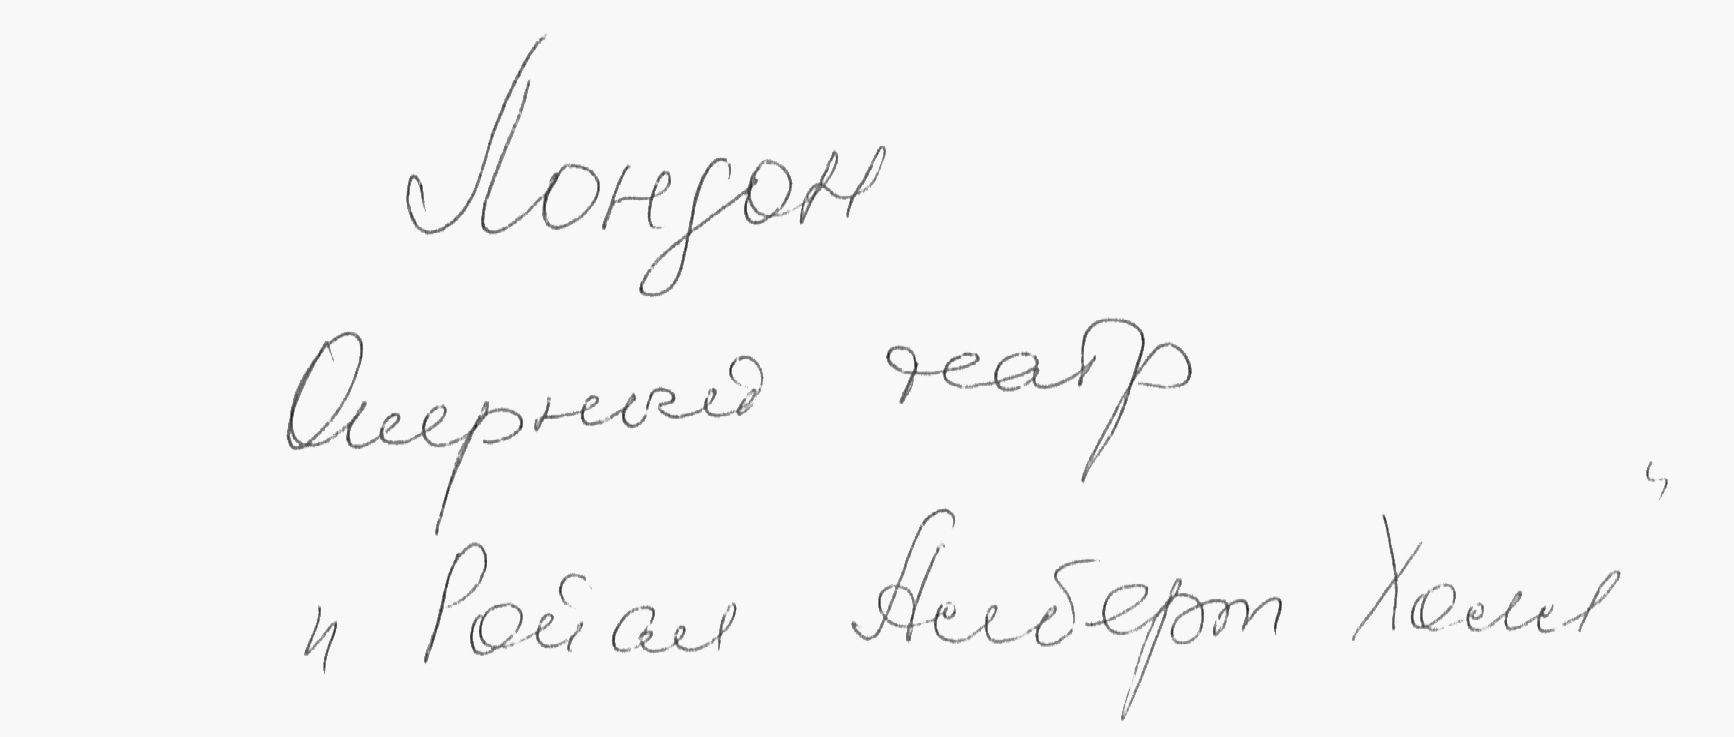 Лондон
Оперный театр
"Ройал Альберт Холл"